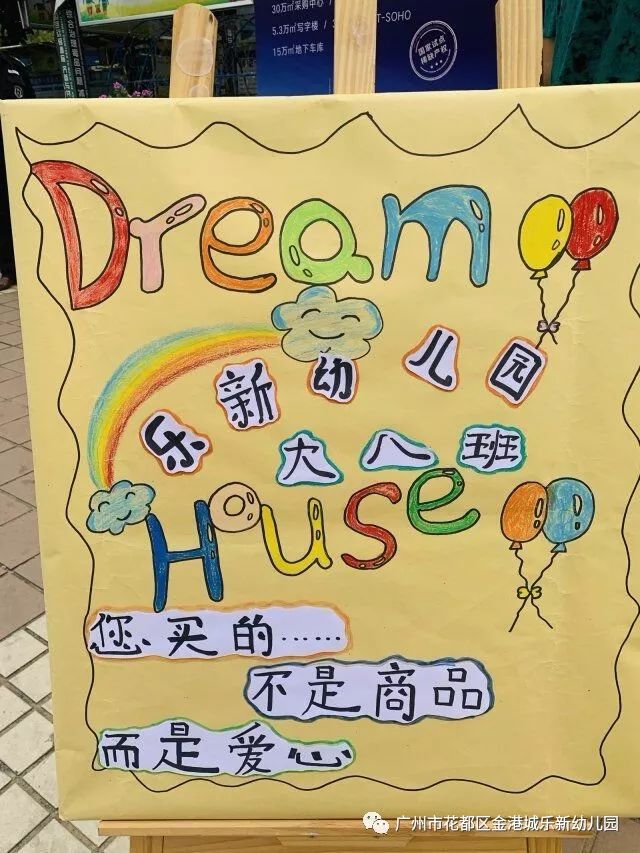 30万㎡采购中心 /
5.3万㎡写字楼 /
T-SOHO
15万㎡地下车库
国家试点
稀缺产权
Dream
乐新幼儿园
大八班
House
您买的……
不是商品
而是爱心
广州市花都区金港城乐新幼儿园